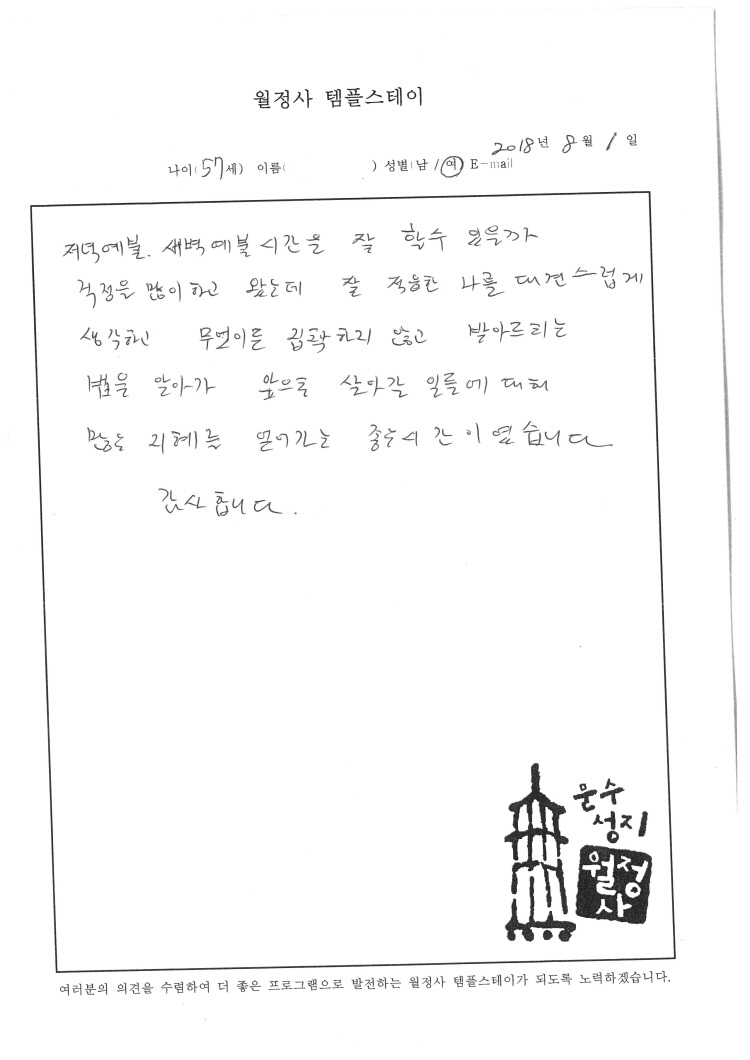 월정사 템플스테이
2018년 8월 1일
나이(57세) 이름( ) 성별(남/여) E-mail
저녁예불. 새벽예불 시간을 잘 할수 있을까
걱정을 많이 하고 왔는데 잘 적응한 나를 대견스럽게
생각하고 무언이를 집확하리 않고 발아르티는
법을 알아가 앞으로 살아갈 일들에 대허
많는 지혜를 얻어가는 좋은시간이 였습니다
감사합니다.
문수
성지
월정
사
여러분의 의견을 수렴하여 더 좋은 프로그램으로 발전하는 월정사 템플스테이가 되도록 노력하겠습니다.